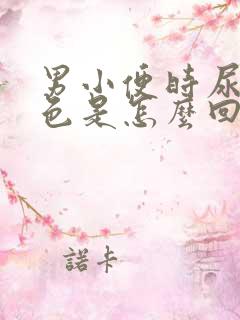 男小便时尿
色是怎麼回
諾卡